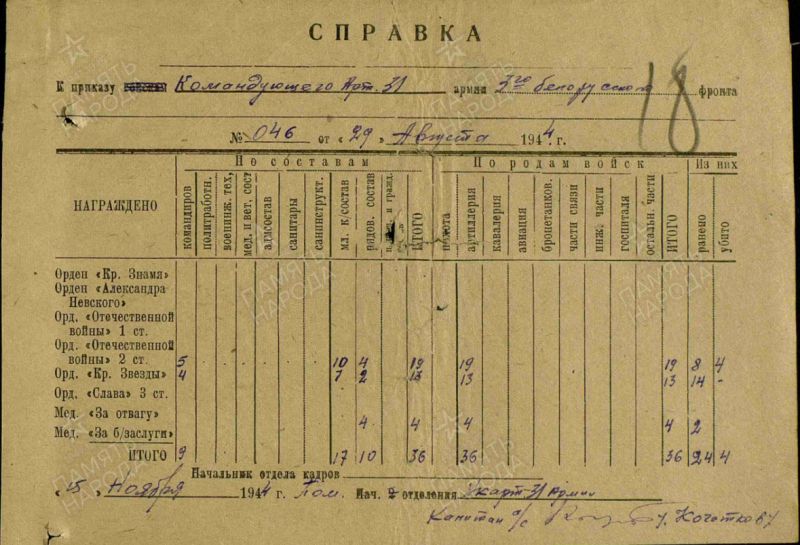 СПРАВКА
К приказу Командующего Арт. 31 армии 3го белорусского фронта
18
№ 046 от «29» Августа 1944 г.
НАГРАЖДЕНО По составам По родам войск Из них
командиров политработн. воениж. тех, мед. и вет. сост адмсостав санитары санинструкт. мл. к/состав рядов. состав и гражд. ИТОГО пехота артиллерия кавалерия авиация бронетанков. части связи инж. части госпиталя остальн. части ИТОГО ранено убито
Орден «Кр. Знамя»
Орден «Александра
Невского»
Орд. «Отечественной
войны» 1 ст.
Орд. «Отечественной
войны» 2 ст. 5 10 4 19 19 19 8 4
Орд. «Кр. Звезды» 4 7 2 13 13 13 14 -
Орд. «Слава» 3 ст.
Мед. «За отвагу»
Мед. «За б/заслуги» 4 4 4 4 2
ИТОГО 9 17 10 36 36 36 24 4
Начальник отдела кадров
«15» Ноября 1944 г. Пом. Нач. 2 отделения Укарт 31 Армии
Капитан а/с
ПАМЯТЬ НАРОДА